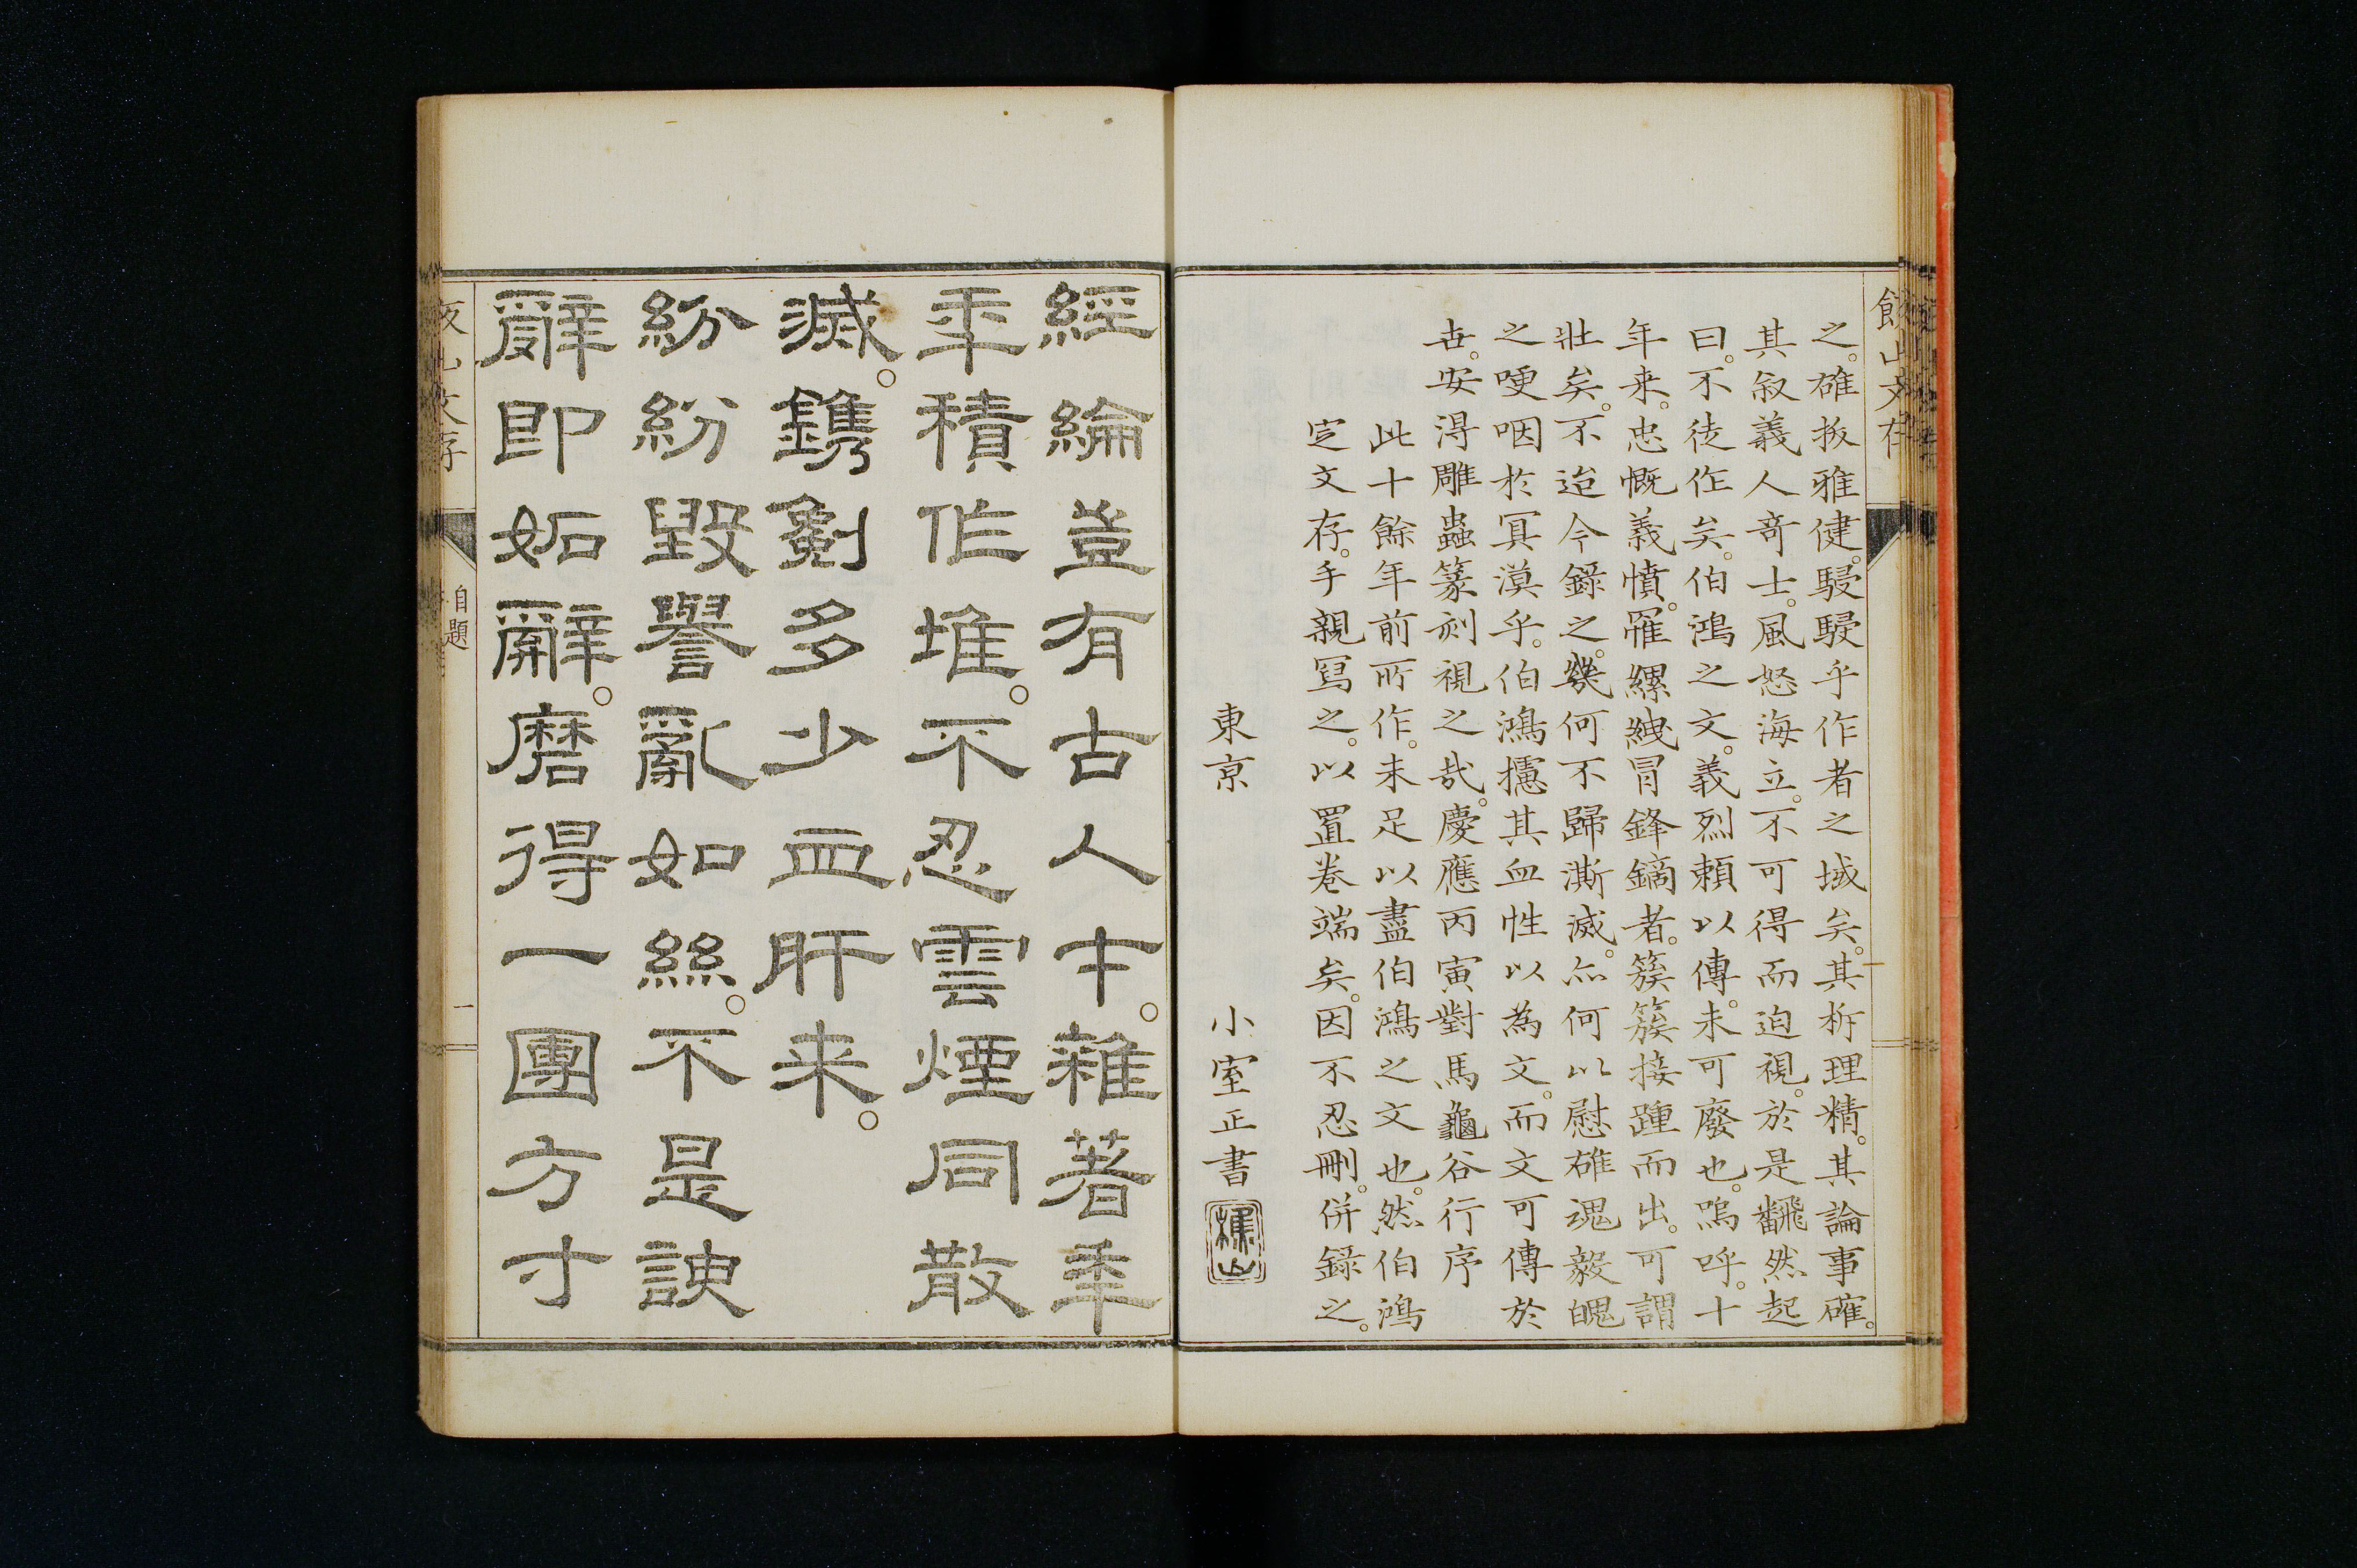 之。確拔雅健。駸駸乎作者之域矣。其析理精。其論事確。
其叙義人奇士。風怒海立。不可得而迫視。於是飜然起
曰。不徒作矣。伯鴻之文。義烈賴以傳。未可廢也。嗚呼。十
年来。忠慨義憤。罹縲絏冒鋒鏑者。簇簇接踵而出。可謂
壯矣。不迨今錄之。幾何不歸澌滅。亦何以慰確魂毅魄
之哽咽於冥漠乎。伯鴻攄其血性以為文。而文可傳於
世。安淂雕蟲篆刻視之哉。慶應丙寅對馬龜谷行序
此十餘年前所作。未足以盡伯鴻之文也。然伯鴻
定文存。手親寫之。以置卷端矣。因不忍刪。併錄之。
東京 小室正書
樵山
經綸豈有古人才。雜著年
年積作堆。不忍雲煙同散
滅。鐫劖多少血肝来。
紛紛毀譽亂如絲。不是諛
辭即妬辭。磨得一團方寸
自題
一